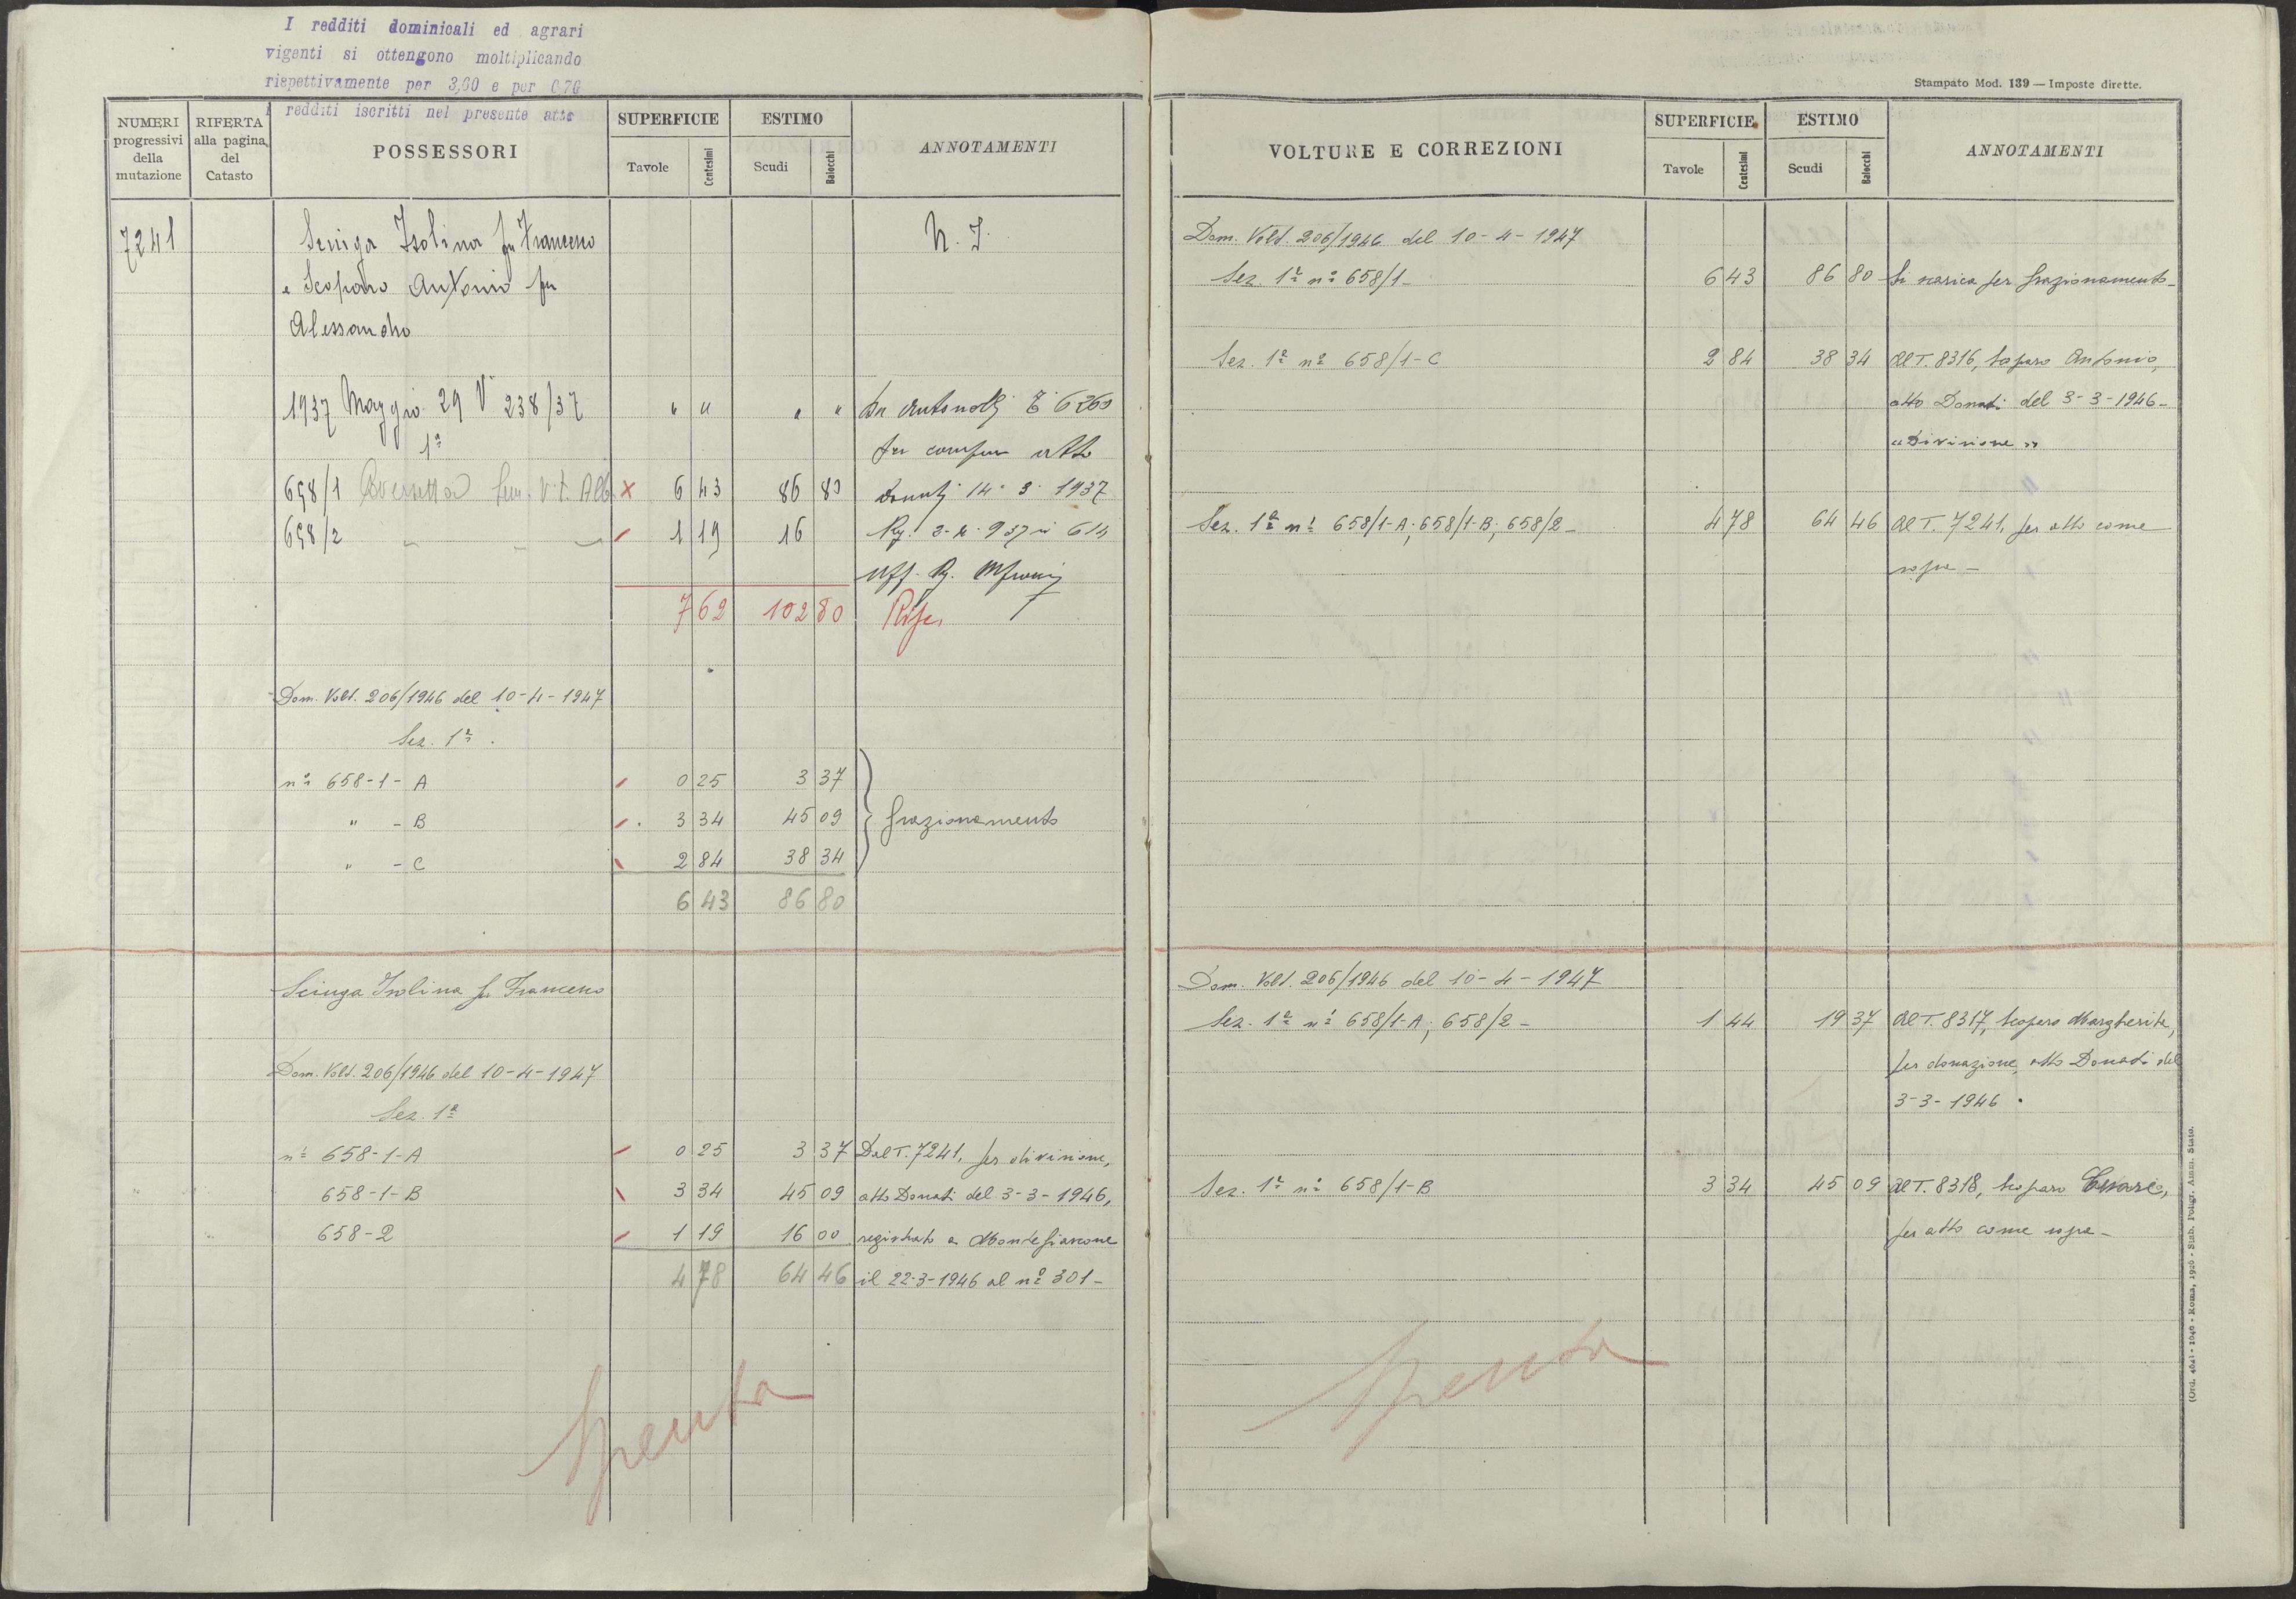 I redditi dominicali ed agrari
vigenti si ottengono moltiplicando
rispettivamente per 3,60 e per 0,70
i redditi iscritti nel presente atto
NUMERI progressivi della mutazione
RIFERTA alla pagina del Catasto
POSSESSORI
SUPERFICIE
Tavole Centesimi
ESTIMO
Scudi Baiocchi
ANNOTAMENTI
7241 Seniga Isolina fu Francesco N. I.
e Scoparo Antonio fu
Alessandro
1937 Maggio 29 V 238/37 " " " " Da Antonelli T 6260
1ª per compra atto
658/1 x 6 43 86 80 Donati 14 3 1937
658/2 1 19 16
7 62 102 80
Dom. Volt. 206/1946 del 10-4-1947
Sez. 1ª
nº 658-1- A 0 25 3 37
" - B 3 34 45 09 frazionamento
" - C 2 84 38 34
6 43 86 80
Sciuga Isolina fu Francesco
Dom. Volt. 206/1946 del 10-4-1947
Sez. 1ª
nⁱ 658-1-A 0 25 3 37 Dal T. 7241, per divisione,
658-1-B 3 34 45 09 atto Donati del 3-3-1946,
658-2 1 19 16 00 registrato a Montefiascone
4 78 64 46 il 22-3-1946 al nº 301-
Spenta
Stampato Mod. 139 — Imposte dirette.
VOLTURE E CORREZIONI
SUPERFICIE
Tavole Centesimi
ESTIMO
Scudi Baiocchi
ANNOTAMENTI
Dom. Volt. 206/1946 del 10-4-1947
Sez. 1ª nº 658/1- 6 43 86 80 Si scarica per frazionamento-
Sez. 1ª nº 658/1-C 2 84 38 34 Al T. 8316, Scoparo Antonio,
atto Donati del 3-3-1946-
"Divisione"
Sez. 1ª nⁱ 658/1-A; 658/1-B; 658/2- 4 78 64 46 Al T. 7241, per atto come
sopra-
Dom. Volt. 206/1946 del 10-4-1947
Sez. 1ª nⁱ 658/1-A; 658/2- 1 44 19 37 Al T. 8317, Scoparo Margherita,
per donazione, atto Donati del
3-3-1946.
Sez. 1ª nº 658/1-B 3 34 45 09 Al T. 8318, Scoparo Cesare,
per atto come sopra-
Spenta